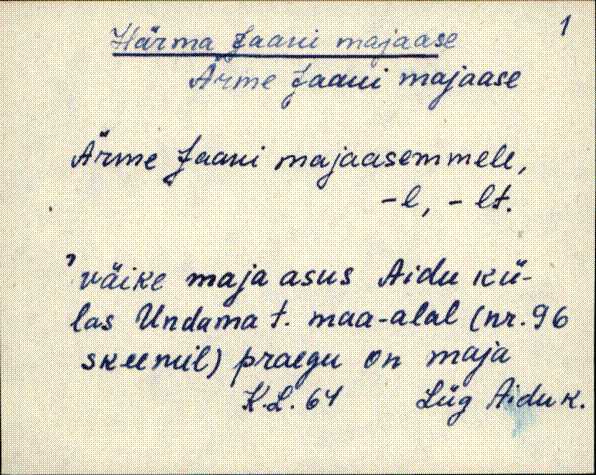 1
Härma Jaani majaase
Ärme Jaani majaase
Ärme Jaani majaasemmele,
-l, -lt.
väike maja asus Aidu kü-
las Undama t. maa-alal (nr. 96
skeemil) praegu on maja
K.L. 64 Lüg Aidu k.